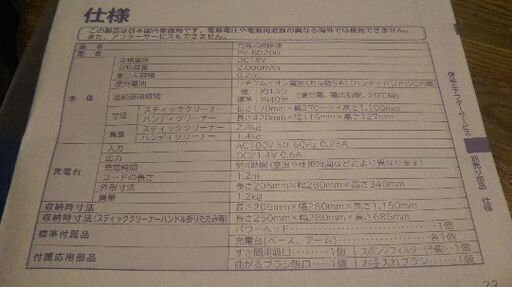 仕様
この製品は日本国内家庭用です。電源電圧や電源周波数の異なる海外では使用できません。
また、アフターサービスもできません。
品名 充電式掃除機
型名
本体
定格電圧 DC18V
公称容量 2,000mAh
集じん容積 0.25L
使用電池
連続使用時間 強：約13分
標準：約40分
寸法 スティッククリーナー 長さ170mm×幅270mm×高さ1,100mm
ハンディクリーナー 長さ420mm×幅115mm×高さ127mm
質量 スティッククリーナー 2.8kg
ハンディクリーナー 1.4kg
充電台
入力 AC100V 50-60Hz 0.25A
出力 DC21.4V 0.6A
充電時間
コードの長さ 1.2m
外形寸法 長さ205mm×幅280mm×高さ340mm
質量 1.2kg
収納時寸法 長さ205mm×幅280mm×高さ1,150mm
収納時寸法（スティッククリーナーハンドル折りたたみ時） 長さ250mm×幅280mm×高さ685mm
標準付属品 パワーヘッド 1個
充電台（ベース、アーム） 各1個
付属応用部品 すき間用吸口 1個 スポンジフィルター（予備） 1個
曲がるブラシ吸口 1個 お手入れブラシ 1個
保証とアフターサービス
別売り部品
仕様
23